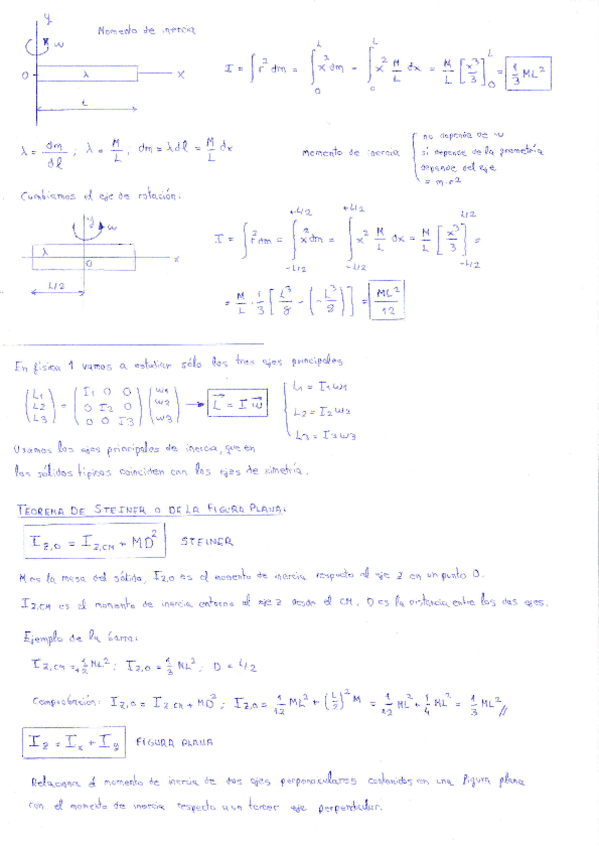 y
Momento de inercia
w
0 λ x
L
I = ∫ r² dm = ∫₀ᴸ x² dm = ∫₀ᴸ x² M/L dx = M/L [x³/3]₀ᴸ = 1/3 ML²
λ = dm/dl ; λ = M/L ; dm = λdl = M/L dx
momento de inercia { no depende de w
si depende de la geometría
depende del eje
= m·r²
Cambiamos el eje de rotación:
y
w
λ 0 x
L/2
I = ∫ r² dm = ∫₋L/2^+L/2 x² dm = ∫₋L/2^+L/2 x² M/L dx = M/L [x³/3]₋L/2^L/2 =
= M/L · 1/3 [L³/8 - (-L³/8)] = ML²/12
En física 1 vamos a estudiar sólo los tres ejes principales
(L1 L2 L3) = (I1 0 0 / 0 I2 0 / 0 0 I3) (w1 w2 w3) → L⃗ = I w⃗
L1 = I1w1
L2 = I2w2
L3 = I3w3
Usamos los ejes principales de inercia, que en
los sólidos típicos coinciden con los ejes de simetría.
TEOREMA DE STEINER O DE LA FIGURA PLANA:
I z,o = I z,cm + MD² STEINER
M es la masa del sólido, I z,o es el momento de inercia respecto al eje z en un punto O.
I z,cm es el momento de inercia entorno al eje z desde el CM, D es la distancia entre los dos ejes.
Ejemplo de la barra:
I z,cm = 1/12 ML² ; I z,o = 1/3 ML² ; D = L/2
Comprobación: I z,o = I z,cm + MD² ; I z,o = 1/12 ML² + (L/2)² M = 1/12 ML² + 1/4 ML² = 1/3 ML² //
I z = I x + I y FIGURA PLANA
Relaciona el momento de inercia de dos ejes perpendiculares contenidos en una figura plana
con el momento de inercia respecto a un tercer eje perpendicular.